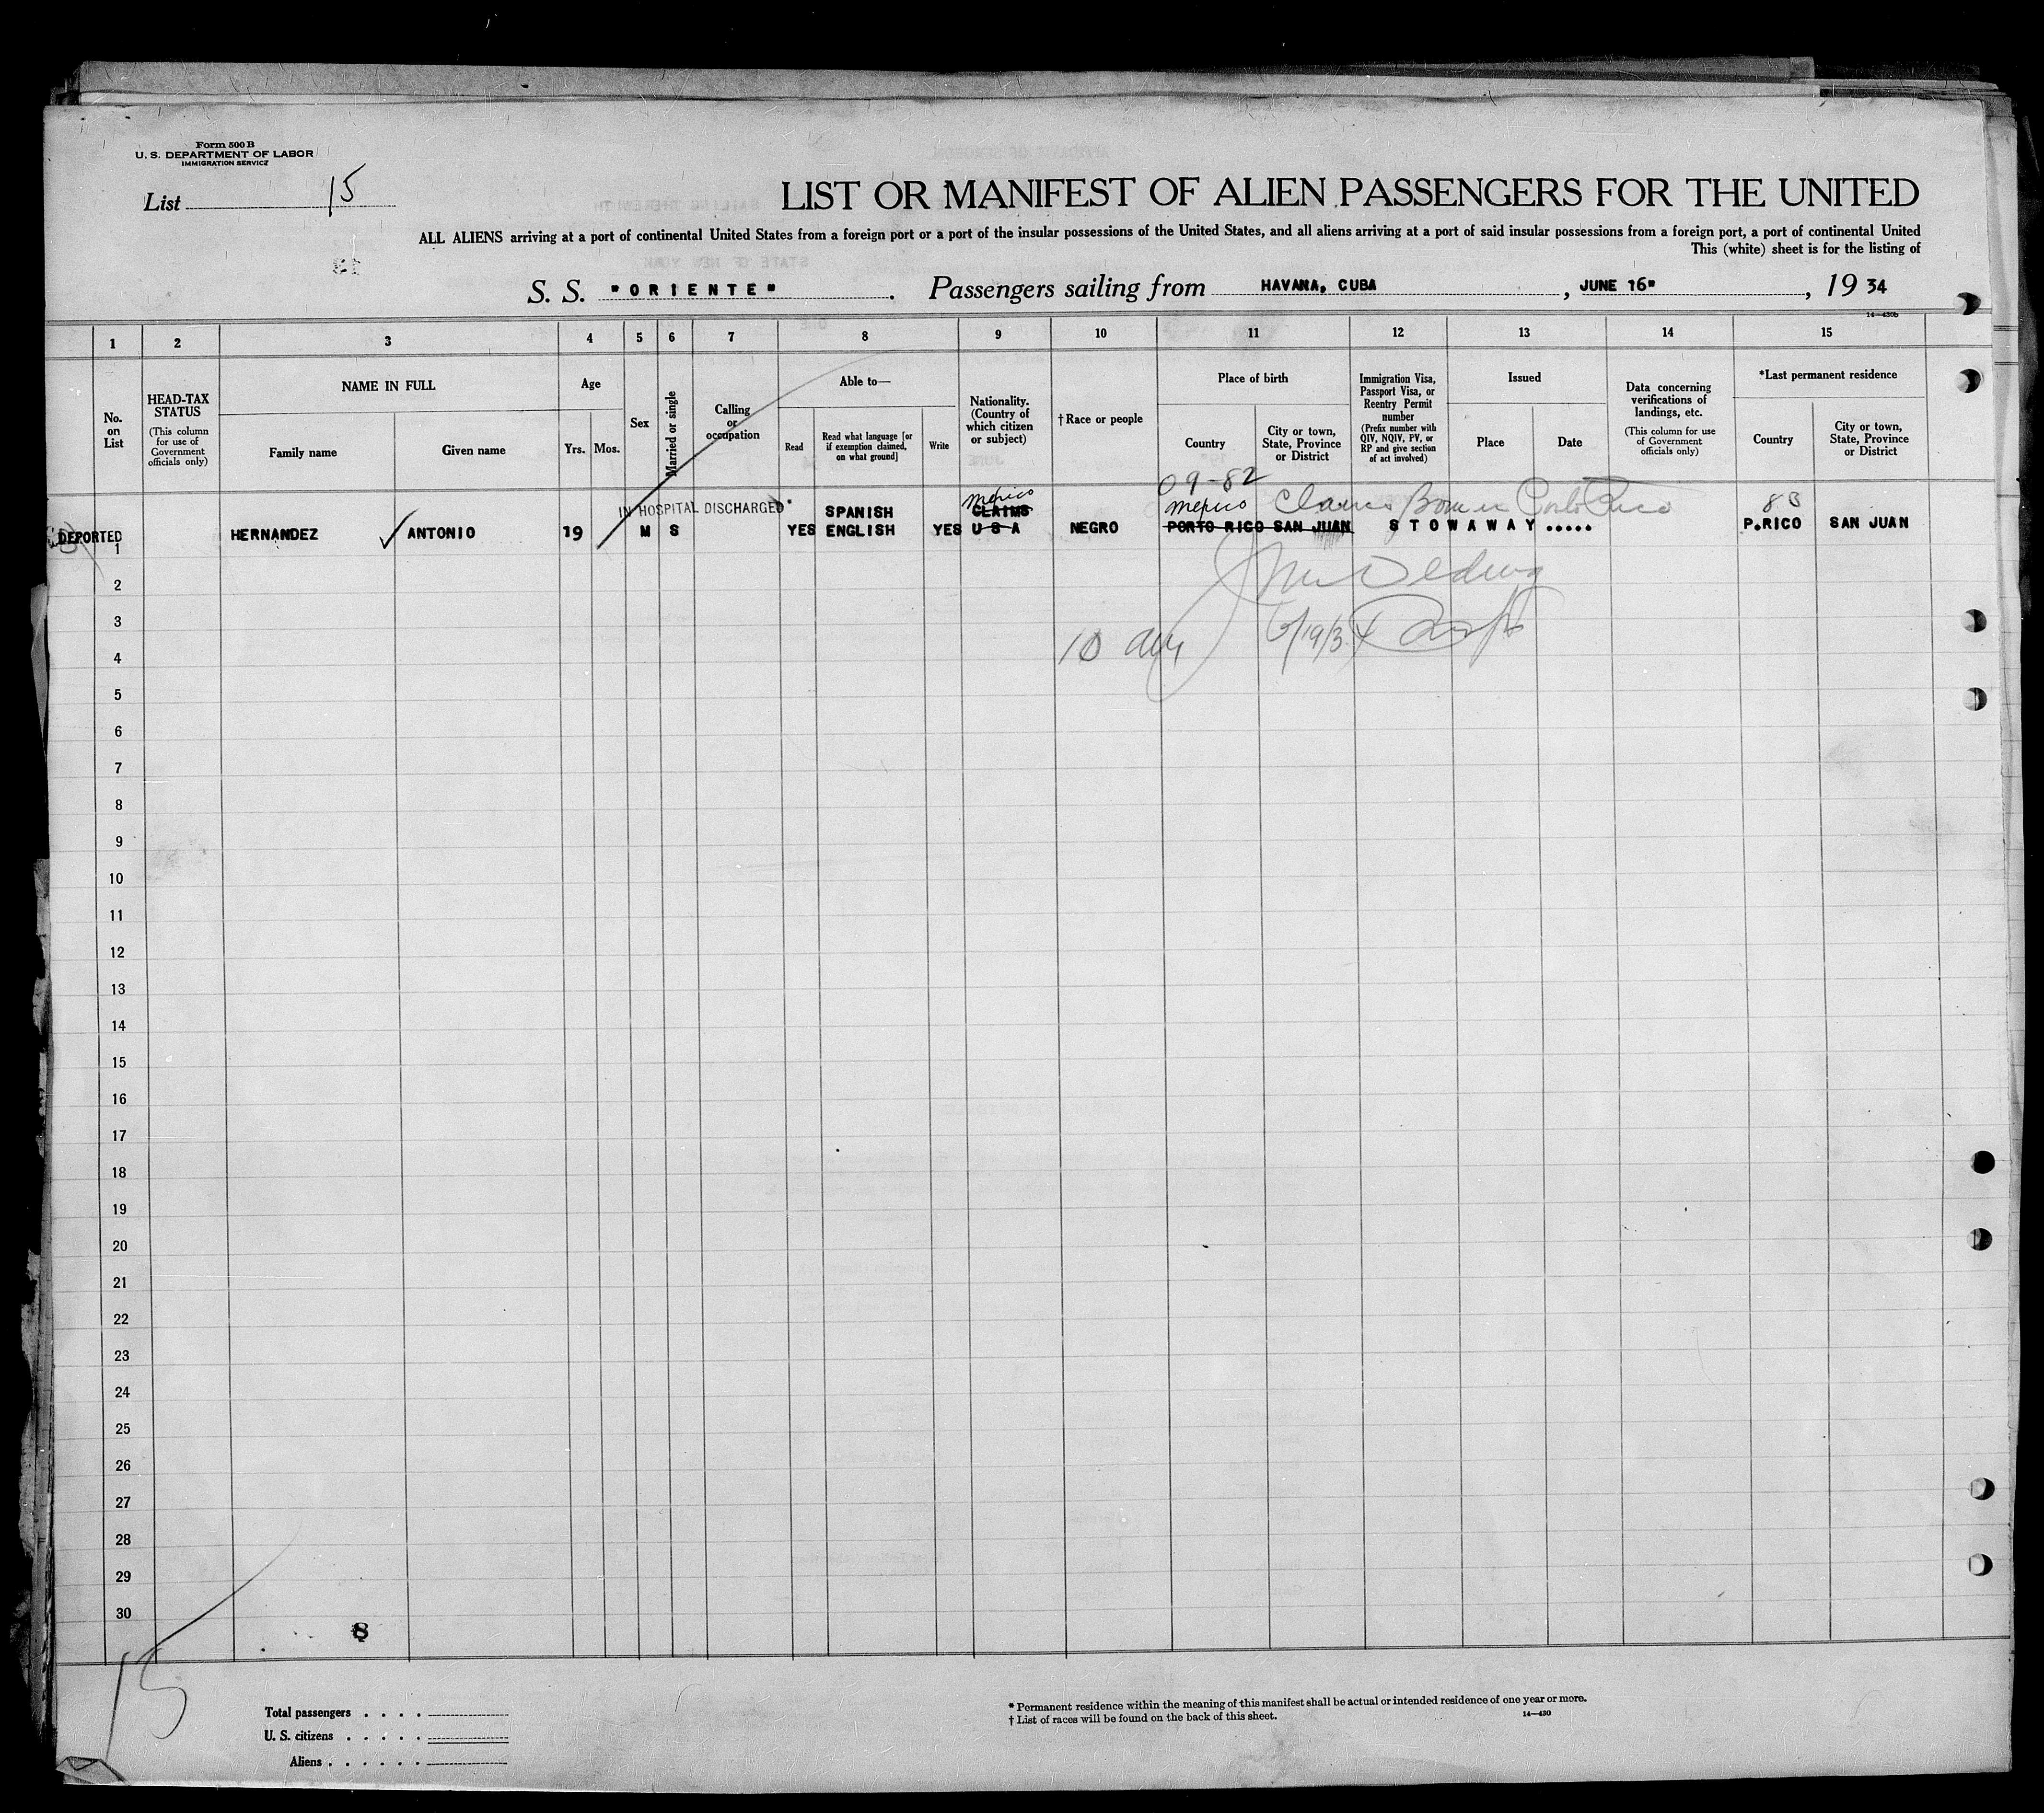 Form 500 B
U. S. DEPARTMENT OF LABOR
IMMIGRATION SERVICE
List 15
LIST OR MANIFEST OF ALIEN PASSENGERS FOR THE UNITED
ALL ALIENS arriving at a port of continental United States from a foreign port or a port of the insular possessions of the United States, and all aliens arriving at a port of said insular possessions from a foreign port, a port of continental United
This (white) sheet is for the listing of
S. S. "ORIENTE". Passengers sailing from HAVANA, CUBA, JUNE 16", 19 34
14-430b
1 2 3 4 5 6 7 8 9 10 11 12 13 14 15
No. on List
HEAD-TAX STATUS (This column for use of Government officials only)
NAME IN FULL
Family name
Given name
Age
Yrs.
Mos.
Sex
Married or single
Calling or occupation
Able to—
Read
Read what language [or if exemption claimed, on what ground]
Write
Nationality. (Country of which citizen or subject)
† Race or people
Place of birth
Country
City or town, State, Province or District
Immigration Visa, Passport Visa, or Reentry Permit number (Prefix number with QIV, NQIV, PV, or RP and give section of act involved)
Issued
Place
Date
Data concerning verifications of landings, etc. (This column for use of Government officials only)
*Last permanent residence
Country
City or town, State, Province or District
09-82
IN HOSPITAL DISCHARGED SPANISH Mexico CLAIMS Mexico Claims Born in Porto Rico 83
DEPORTED 1 HERNANDEZ ✓ ANTONIO 19 M S YES ENGLISH YES U S A NEGRO PORTO RICO SAN JUAN STOWAWAY ..... P.RICO SAN JUAN
2
3
6/19/34
10
4
5
6
7
8
9
10
11
12
13
14
15
16
17
18
19
20
21
22
23
24
25
26
27
28
29
30
8
15
Total passengers . . . .
U. S. citizens . . . . .
Aliens . . . . . .
* Permanent residence within the meaning of this manifest shall be actual or intended residence of one year or more.
† List of races will be found on the back of this sheet.
14-430